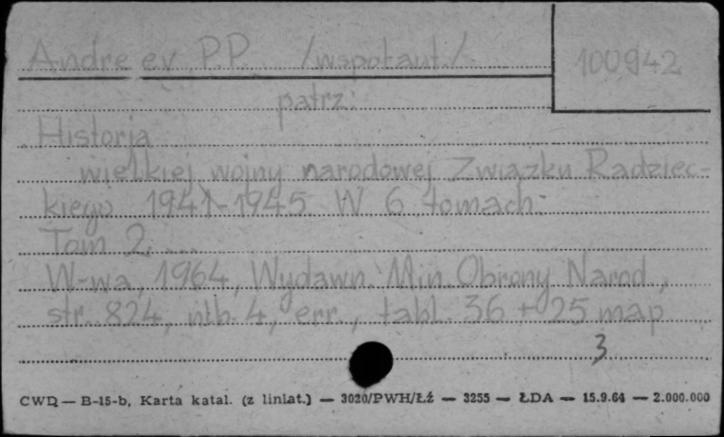 Andreev P.P. /współaut./ 100942
patrz:
Historja
wielkiej wojny narodowej Związku Radziec-
kiego 1941-1945. W 6 tomach.
Tom 2.
W-wa, 1964, Wydawn. Min. Obrony Narod.,
str. 824, nlb. 4, err., tabl. 36 + 25 map
3
CWD — B-15-b, Karta katal. (z liniat.) — 3020/PWH/Łź — 3255 — ŁDA — 15.9.64 — 2.000.000